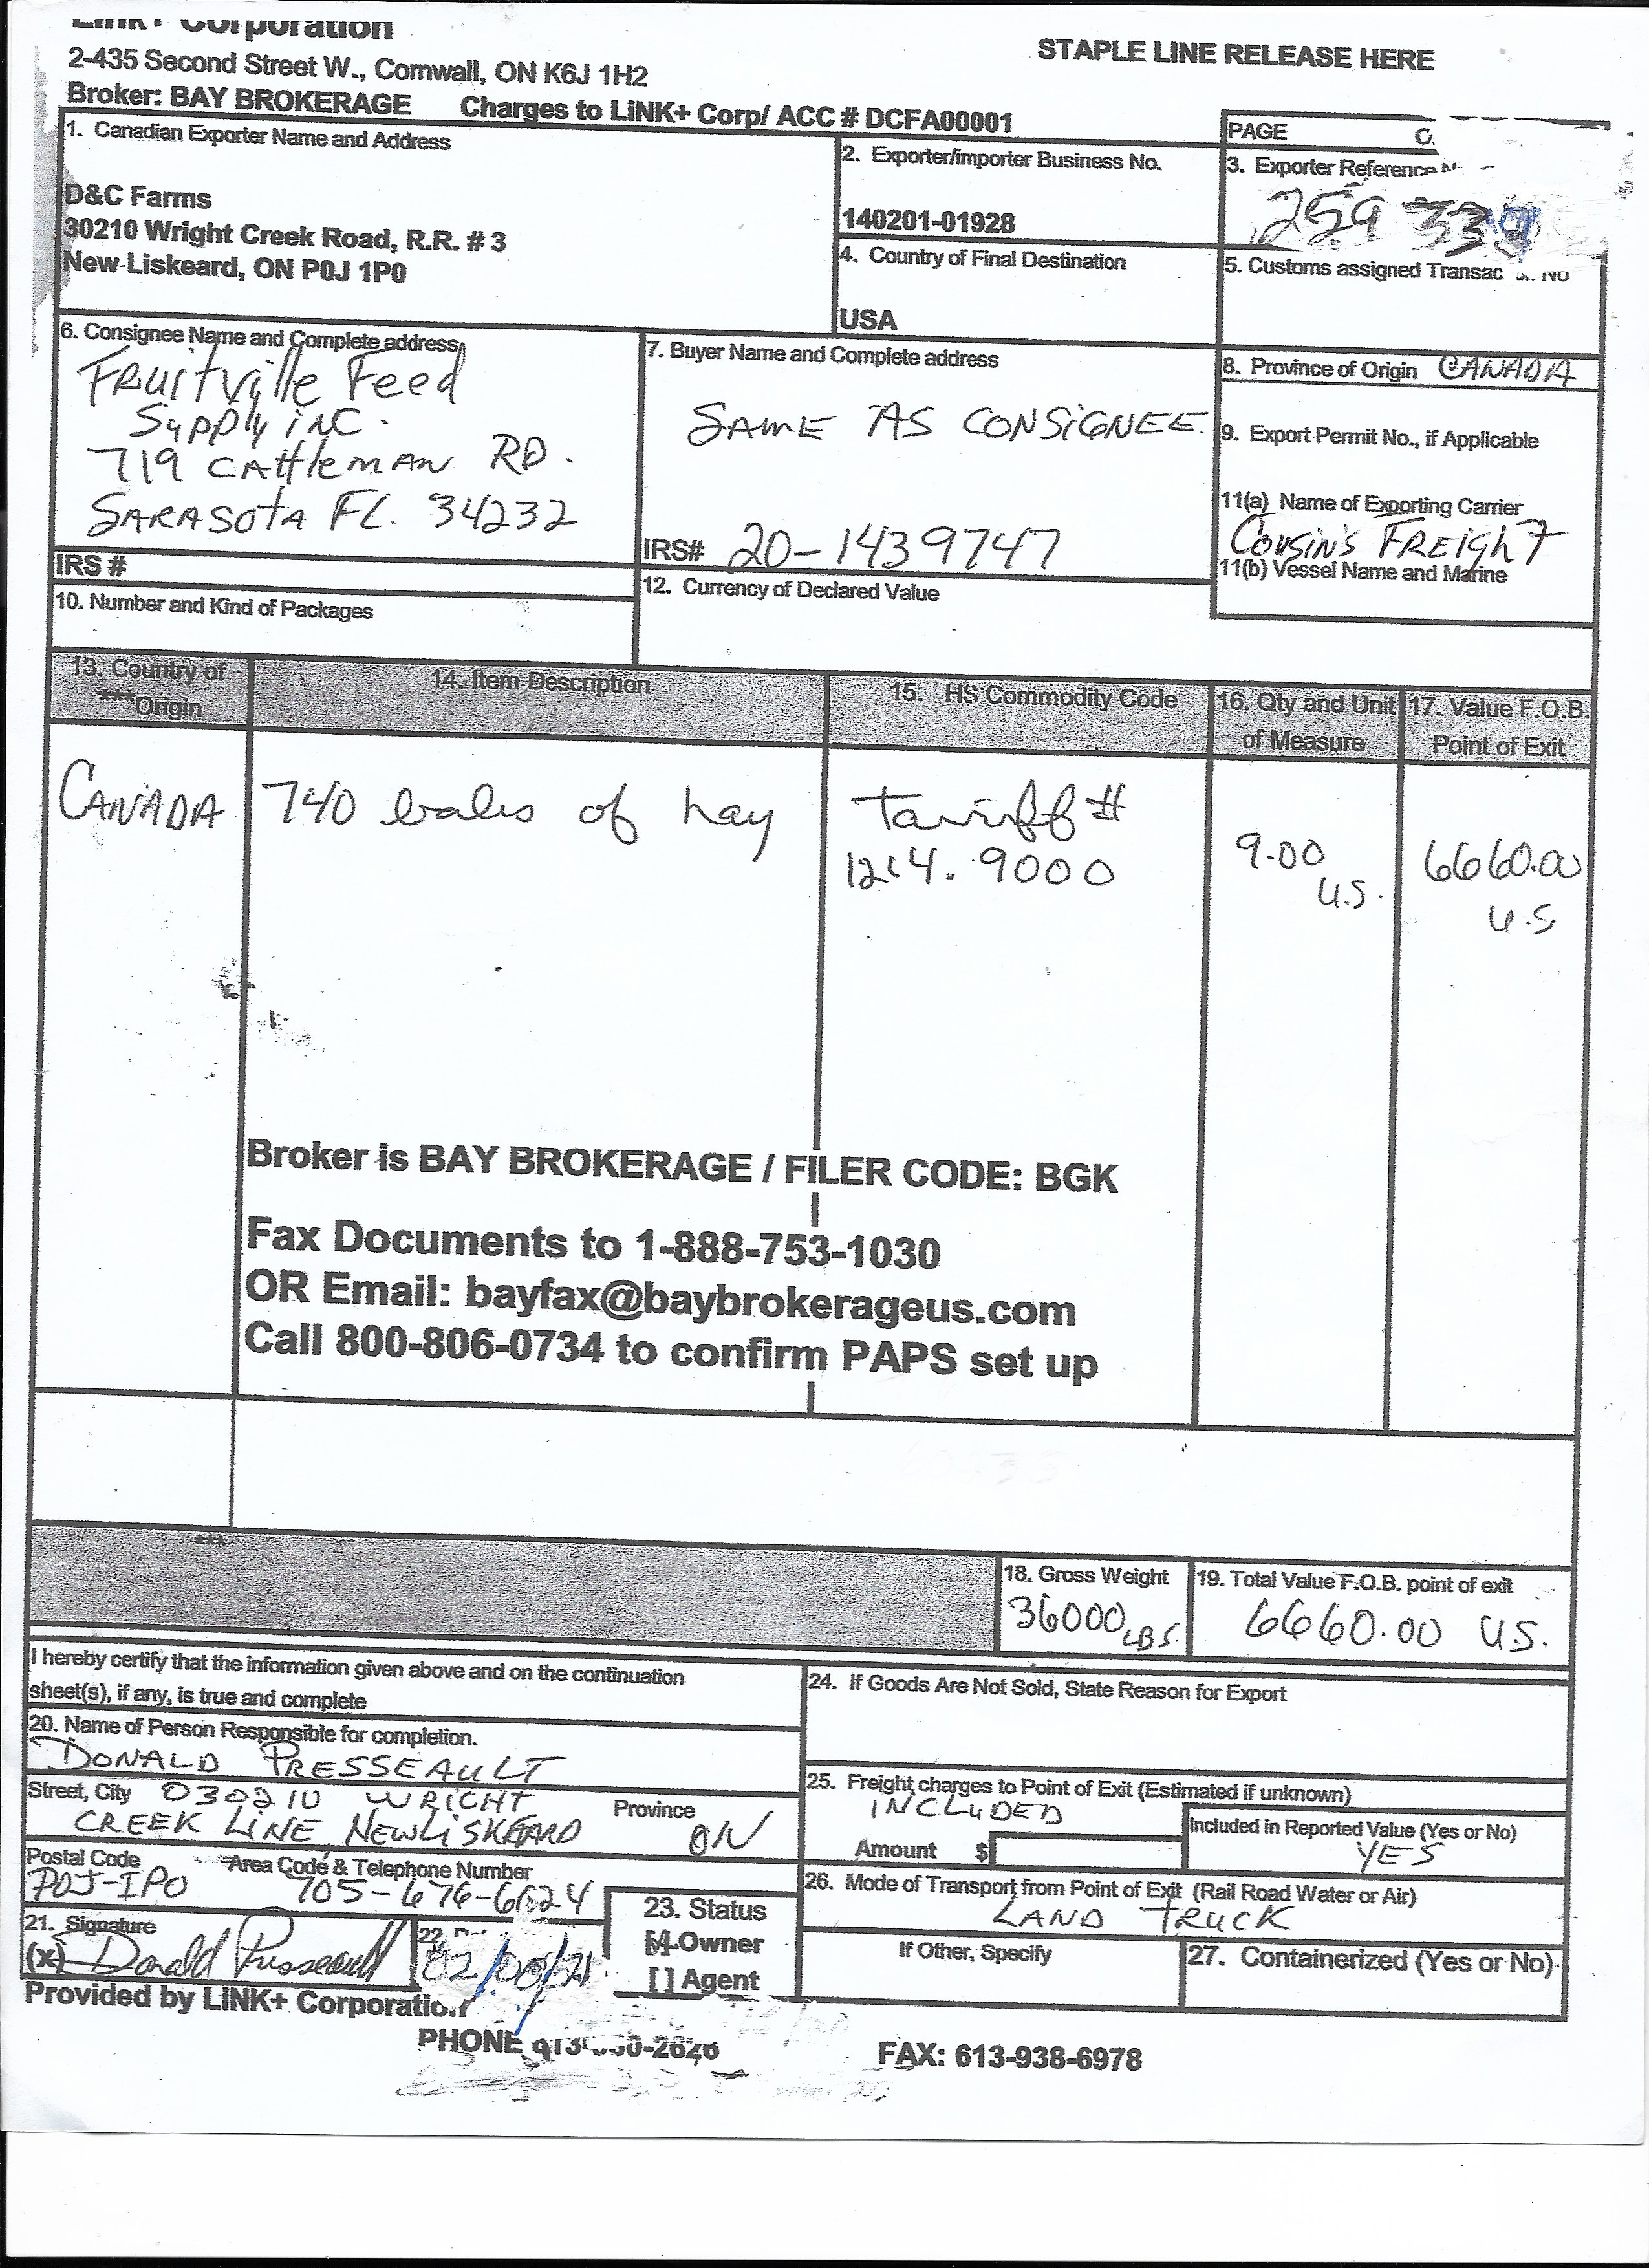 Corporation
2-435 Second Street W., Cornwall, ON K6J 1H2
STAPLE LINE RELEASE HERE
Broker: BAY BROKERAGE Charges to LiNK+ Corp/ ACC # DCFA00001
1. Canadian Exporter Name and Address
D&C Farms
30210 Wright Creek Road, R.R. # 3
New Liskeard, ON P0J 1P0
2. Exporter/importer Business No.
140201-01928
PAGE
3. Exporter Reference
259
4. Country of Final Destination
USA
5. Customs assigned No
6. Consignee Name and Complete address
Fruitville Feed
Supply inc.
719 Cattleman RD.
Sarasota FL. 34232
IRS #
7. Buyer Name and Complete address
SAME AS CONSIGNEE
IRS# 20-1439747
8. Province of Origin CANADA
9. Export Permit No., if Applicable
11(a) Name of Exporting Carrier
Cousin's Freight
11(b) Vessel Name and Marine
10. Number and Kind of Packages
12. Currency of Declared Value
13. Country of
***Origin
14. Item Description
15. HS Commodity Code
16. Qty and Unit
of Measure
17. Value F.O.B.
Point of Exit
CANADA
740 bales of hay
tariff #
1214.9000
9.00
U.S.
6660.00
U.S
Broker is BAY BROKERAGE / FILER CODE: BGK
Fax Documents to 1-888-753-1030
OR Email: bayfax@baybrokerageus.com
Call 800-806-0734 to confirm PAPS set up
***
18. Gross Weight
36000 LBS.
19. Total Value F.O.B. point of exit
6660.00 US.
I hereby certify that the information given above and on the continuation
sheet(s), if any, is true and complete
20. Name of Person Responsible for completion.
DONALD PRESSEAULT
Street, City 030210 WRIGHT
CREEK LINE, NEWLISKEARD
Province
ON
Postal Code
POJ-IPO
Area Code & Telephone Number
705-676-6624
21. Signature
(x) Donald Presseault
22.
23. Status
Owner
[ ] Agent
24. If Goods Are Not Sold, State Reason for Export
25. Freight charges to Point of Exit (Estimated if unknown)
INCLUDED
Amount $
Included in Reported Value (Yes or No)
YES
26. Mode of Transport from Point of Exit (Rail Road Water or Air)
LAND TRUCK
If Other, Specify
27. Containerized (Yes or No)
Provided by LiNK+ Corporation
PHONE
FAX: 613-938-6978